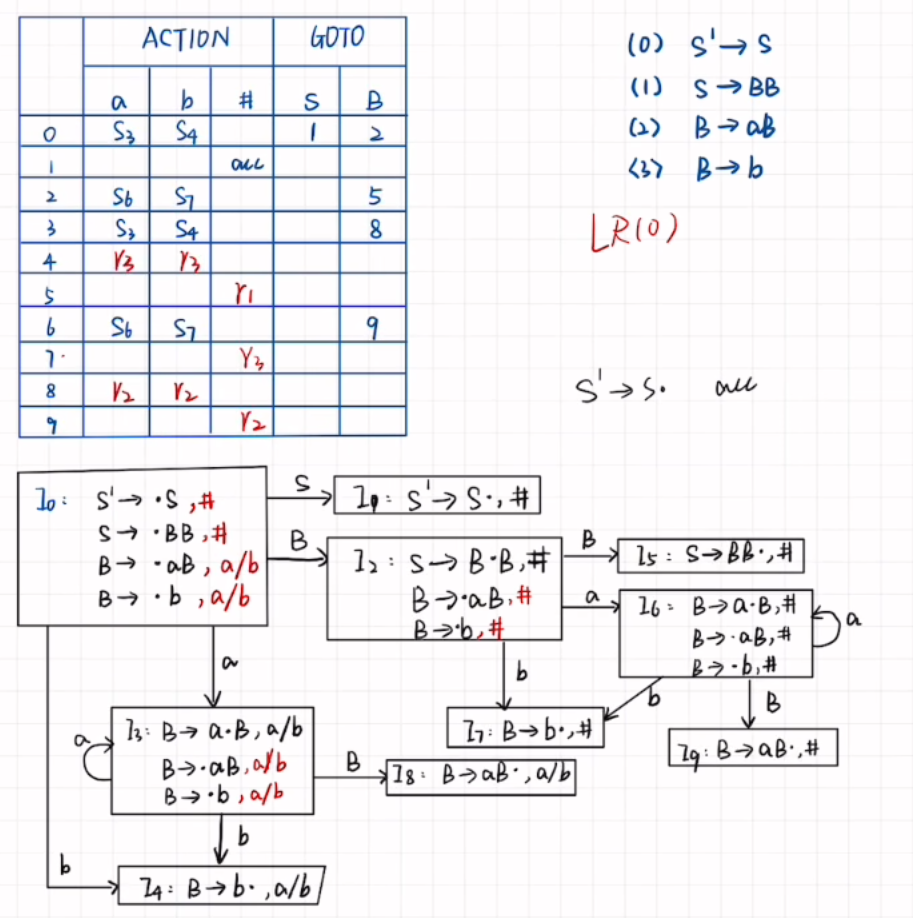 ACTION GOTO
a b # S B
0 S3 S4 1 2
1 acc
2 S6 S7 5
3 S3 S4 8
4 r3 r3
5 r1
6 S6 S7 9
7 r3
8 r2 r2
9 r2
(0) S' → S
(1) S → BB
(2) B → aB
(3) B → b
LR(0)
S' → S· acc
I0: S' → ·S ,#
S → ·BB ,#
B → ·aB , a/b
B → ·b , a/b
S
I1: S' → S·, #
B
I2: S → B·B, #
B → ·aB, #
B → ·b, #
B
I5: S → BB·, #
a
I6: B → a·B, #
B → ·aB, #
B → ·b, #
a
b
I7: B → b·, #
b
B
I9: B → aB·, #
a
I3: B → a·B, a/b
B → ·aB, a/b
B → ·b , a/b
a
B
I8: B → aB·, a/b
b
b
I4: B → b· , a/b